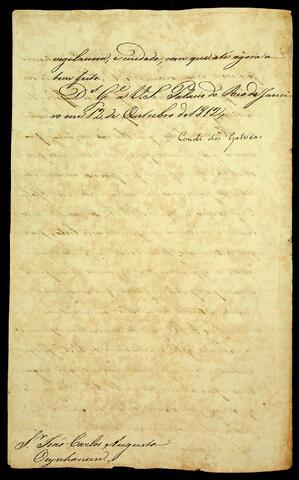 vigilancia, e cuidado, com que até agora o
tem feito.
Ds. Ge. a V. S. Palacio do Rio de Janei
ro em 12 de Outubro de 1812
Conde das Galveas
Sr. João Carlos Augusto
Oeynhausen